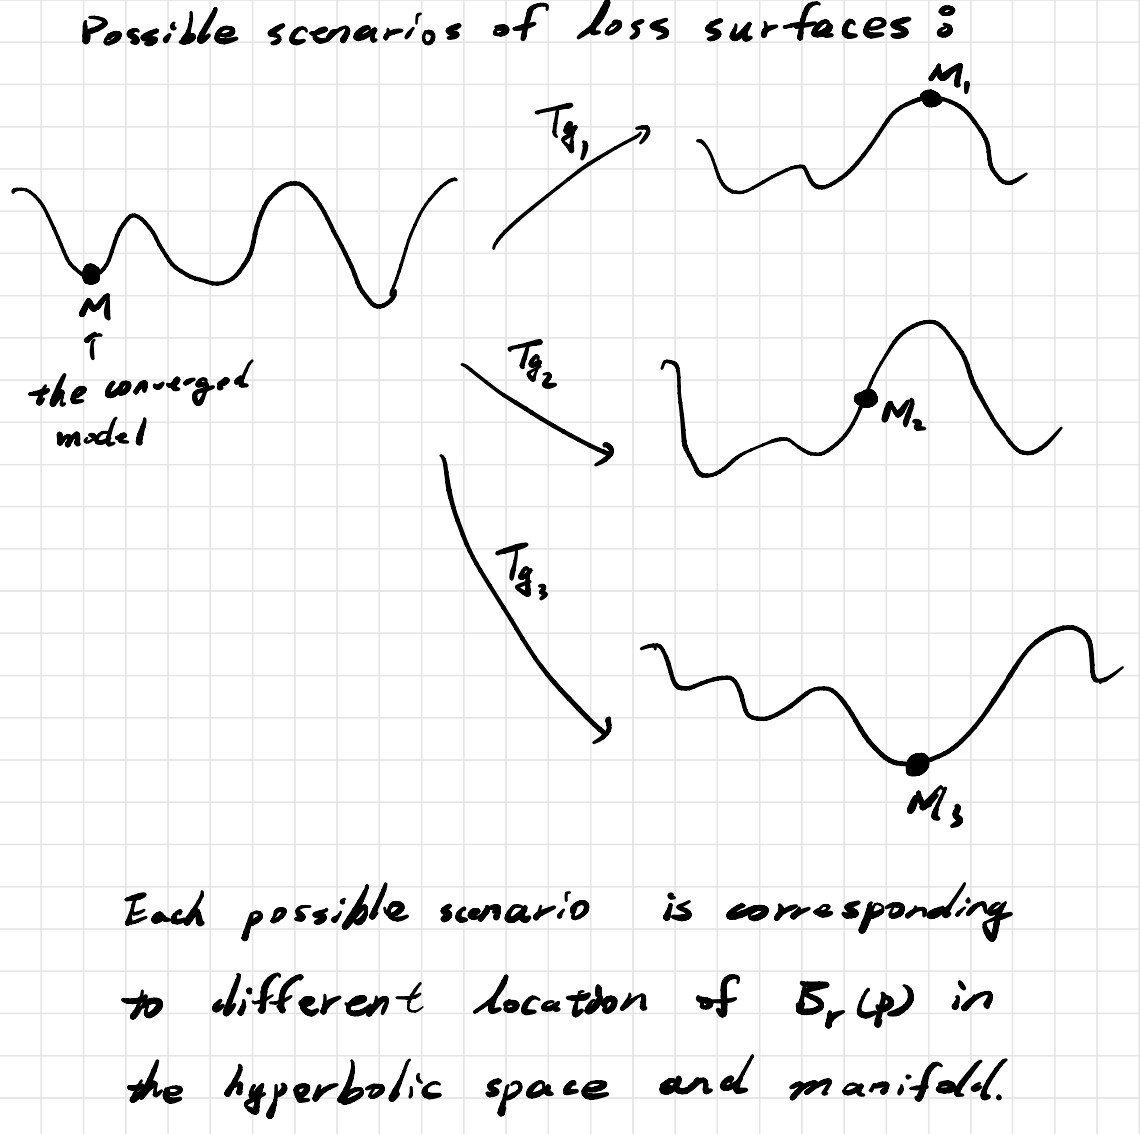 Possible scenarios of loss surfaces :
M₁
T_{g₁}
M
↑
the converged
model
T_{g₂}
M₂
T_{g₃}
M₃
Each possible scenario is corresponding
to different location of B_r(p) in
the hyperbolic space and manifold.